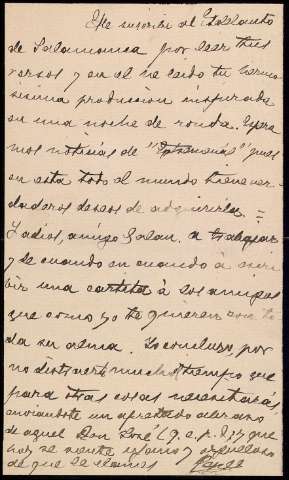 Me suscribí al Adelanto
de Salamanca por leer tus
versos y en el he leido tu hermo
sisima produccion inspirada
en una noche de ronda. Espera
mos noticias de "Extremeñas" pues
en esta todo el mundo tiene ver
daderos deseos de adquirirla =
Y adios, amigo Galan. a trabajar
y de cuando en cuando á escri
bir una cartita á los amigos
que como yo te quieren con to
da su alma. Yo concluyo, por
no distraerte mucho tiempo que
para otras cosas necesitarás,
enviandote un apretado abrazo
de aquel Don José (q. e. p. d.) y que
hoy se siente ufano y orgulloso
de que le llames Pepe